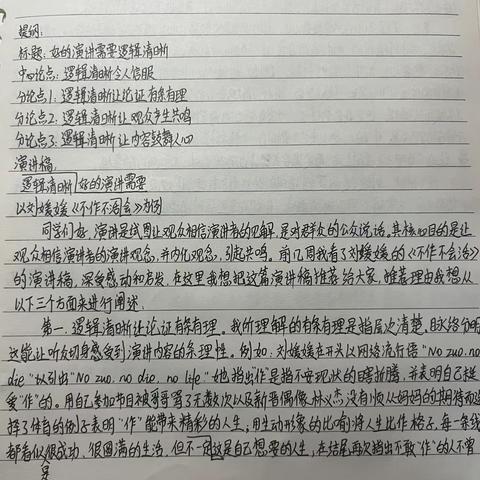 提纲:
标题:好的演讲需要逻辑清晰
中心论点:逻辑清晰令人信服
分论点1:逻辑清晰让论证有条有理
分论点2:逻辑清晰让观众产生共鸣
分论点3:逻辑清晰让内容鼓舞人心
演讲稿:
逻辑清晰好的演讲需要
以刘媛媛《不作不会》为例
同学们好,演讲是试图让观众相信演讲者的见解,是对群众的公众说话。其核心目的是让
观众相信演讲者的演讲观念,并内化观念,引起共鸣。前几周我看了刘媛媛的《不作不会活》
的演讲稿,深受感动和启发,在这里我想把这篇演讲稿推荐给大家,推荐理由我想从
以下三个方面来进行阐述.
第一,逻辑清晰让论证有条有理。我所理解的有条有理是指层次清楚,脉络分明
这能让听众切身感受到演讲内容的条理性。例如:刘媛媛在开头以网络流行语"No zuo,no
die"以引出"No zuo, no die, no life."她指出"作"是指不安现状的瞎折腾,并表明自己挺
爱"作"的。用自己参加节目被哥哥骂了无数次以及新晋偶像林义杰没有顺从妈妈的期待而选
择了体育的例子表明"作"能带来精彩的人生;用生动形象的比喻将人生比作格子,每一条线
都看似很成功,很圆满的生活,但不一定这是自己想要的人生,在结尾再次指出不敢"作"的人不曾